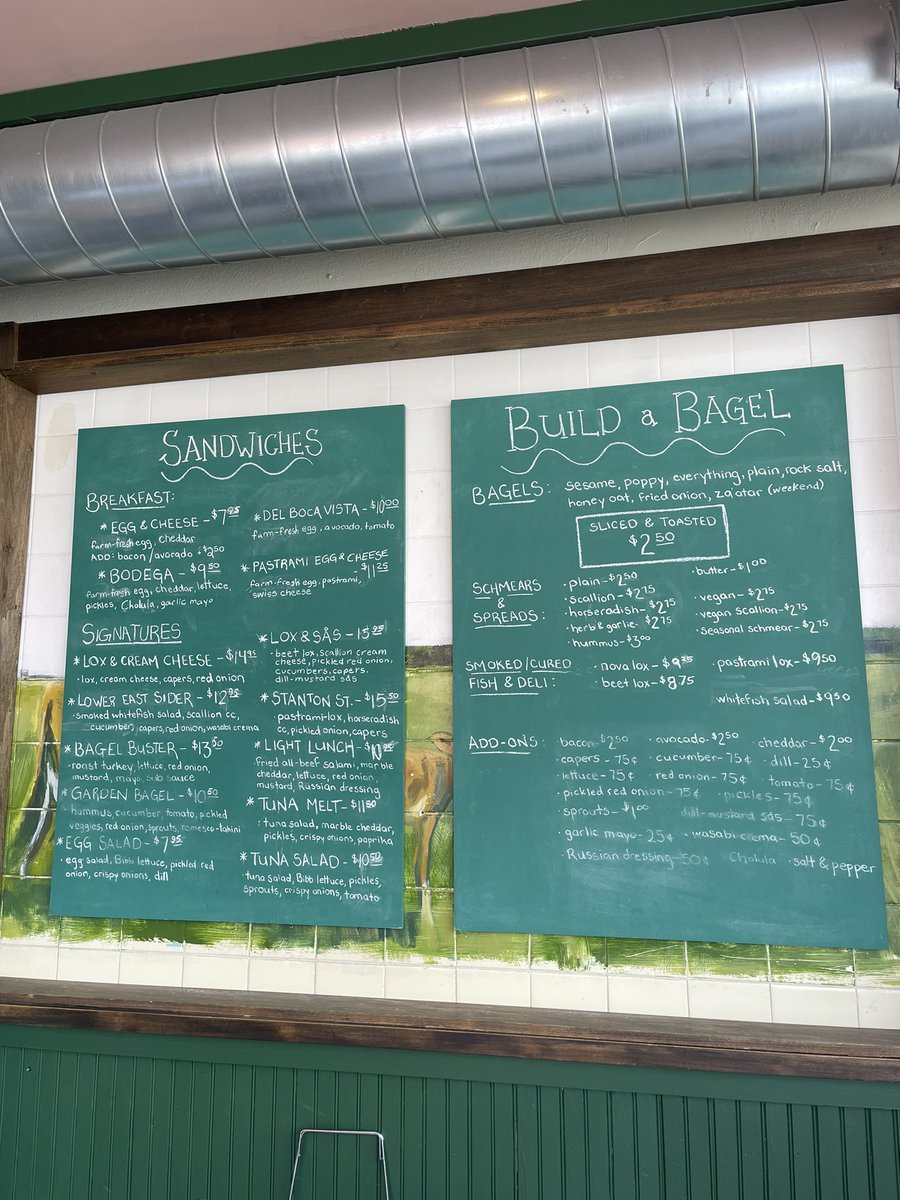 SANDWICHES
BREAKFAST:
* EGG & CHEESE - $7.95
farm-fresh egg, cheddar
ADD: bacon/avocado +$2.50
* BODEGA - $9.50
farm-fresh egg, cheddar, lettuce,
pickles, Cholula, garlic mayo
* DEL BOCA VISTA - $10.00
farm-fresh egg, avocado, tomato
* PASTRAMI EGG & CHEESE
- $11.25
farm-fresh egg, pastrami,
swiss cheese
SIGNATURES
* LOX & CREAM CHEESE - $14.95
· lox, cream cheese, capers, red onion
* LOWER EAST SIDER - $12.95
· smoked whitefish salad, scallion cc,
cucumber, capers, red onion, wasabi crema
* BAGEL BUSTER - $13.50
· roast turkey, lettuce, red onion,
mustard, mayo, sauce
* GARDEN BAGEL - $10.50
hummus, cucumber, tomato, pickled
veggies, red onion, sprouts, romesco-tahini
* EGG SALAD - $7.95
egg salad, Bibb lettuce, pickled red
onion, crispy onions, dill
* LOX & SÅS - 15.25
· beet lox, scallion cream
cheese, pickled red onion,
cucumbers, capers,
dill-mustard sås
* STANTON ST. - $15.50
· pastrami-lox, horseradish
cc, pickled onion, capers
* LIGHT LUNCH - $10.95
fried all-beef salami, marble
cheddar, lettuce, red onion,
mustard, Russian dressing
* TUNA MELT - $11.50
· tuna salad, marble cheddar,
pickles, crispy onions, paprika
* TUNA SALAD - $10.50
tuna salad, Bibb lettuce, pickles,
sprouts, crispy onions, tomato
BUILD a BAGEL
BAGELS: sesame, poppy, everything, plain, rock salt,
honey oat, fried onion, za'atar (weekend)
SLICED & TOASTED
$2.50
SCHMEARS
&
SPREADS:
· plain - $2.50
· scallion - $2.75
· horseradish - $2.75
· herb & garlic - $2.75
hummus - $3.00
· butter - $1.00
· vegan - $2.75
vegan scallion - $2.75
· seasonal schmear - $2.75
SMOKED/CURED
FISH & DELI:
· nova lox - $9.25
· beet lox - $8.75
pastrami lox - $9.50
whitefish salad - $9.50
ADD-ONS: bacon - $2.50 · avocado - $2.50 cheddar - $2.00
· capers - 75¢ · cucumber - 75¢ · dill - 25¢
· lettuce - 75¢ · red onion - 75¢ · tomato - 75¢
· pickled red onion - 75¢ · pickles - 75¢
· sprouts - $1.00 dill-mustard sås - 75¢
· garlic mayo - 25¢ · wasabi crema - 50¢
· Russian dressing - 50¢ Cholula · salt & pepper